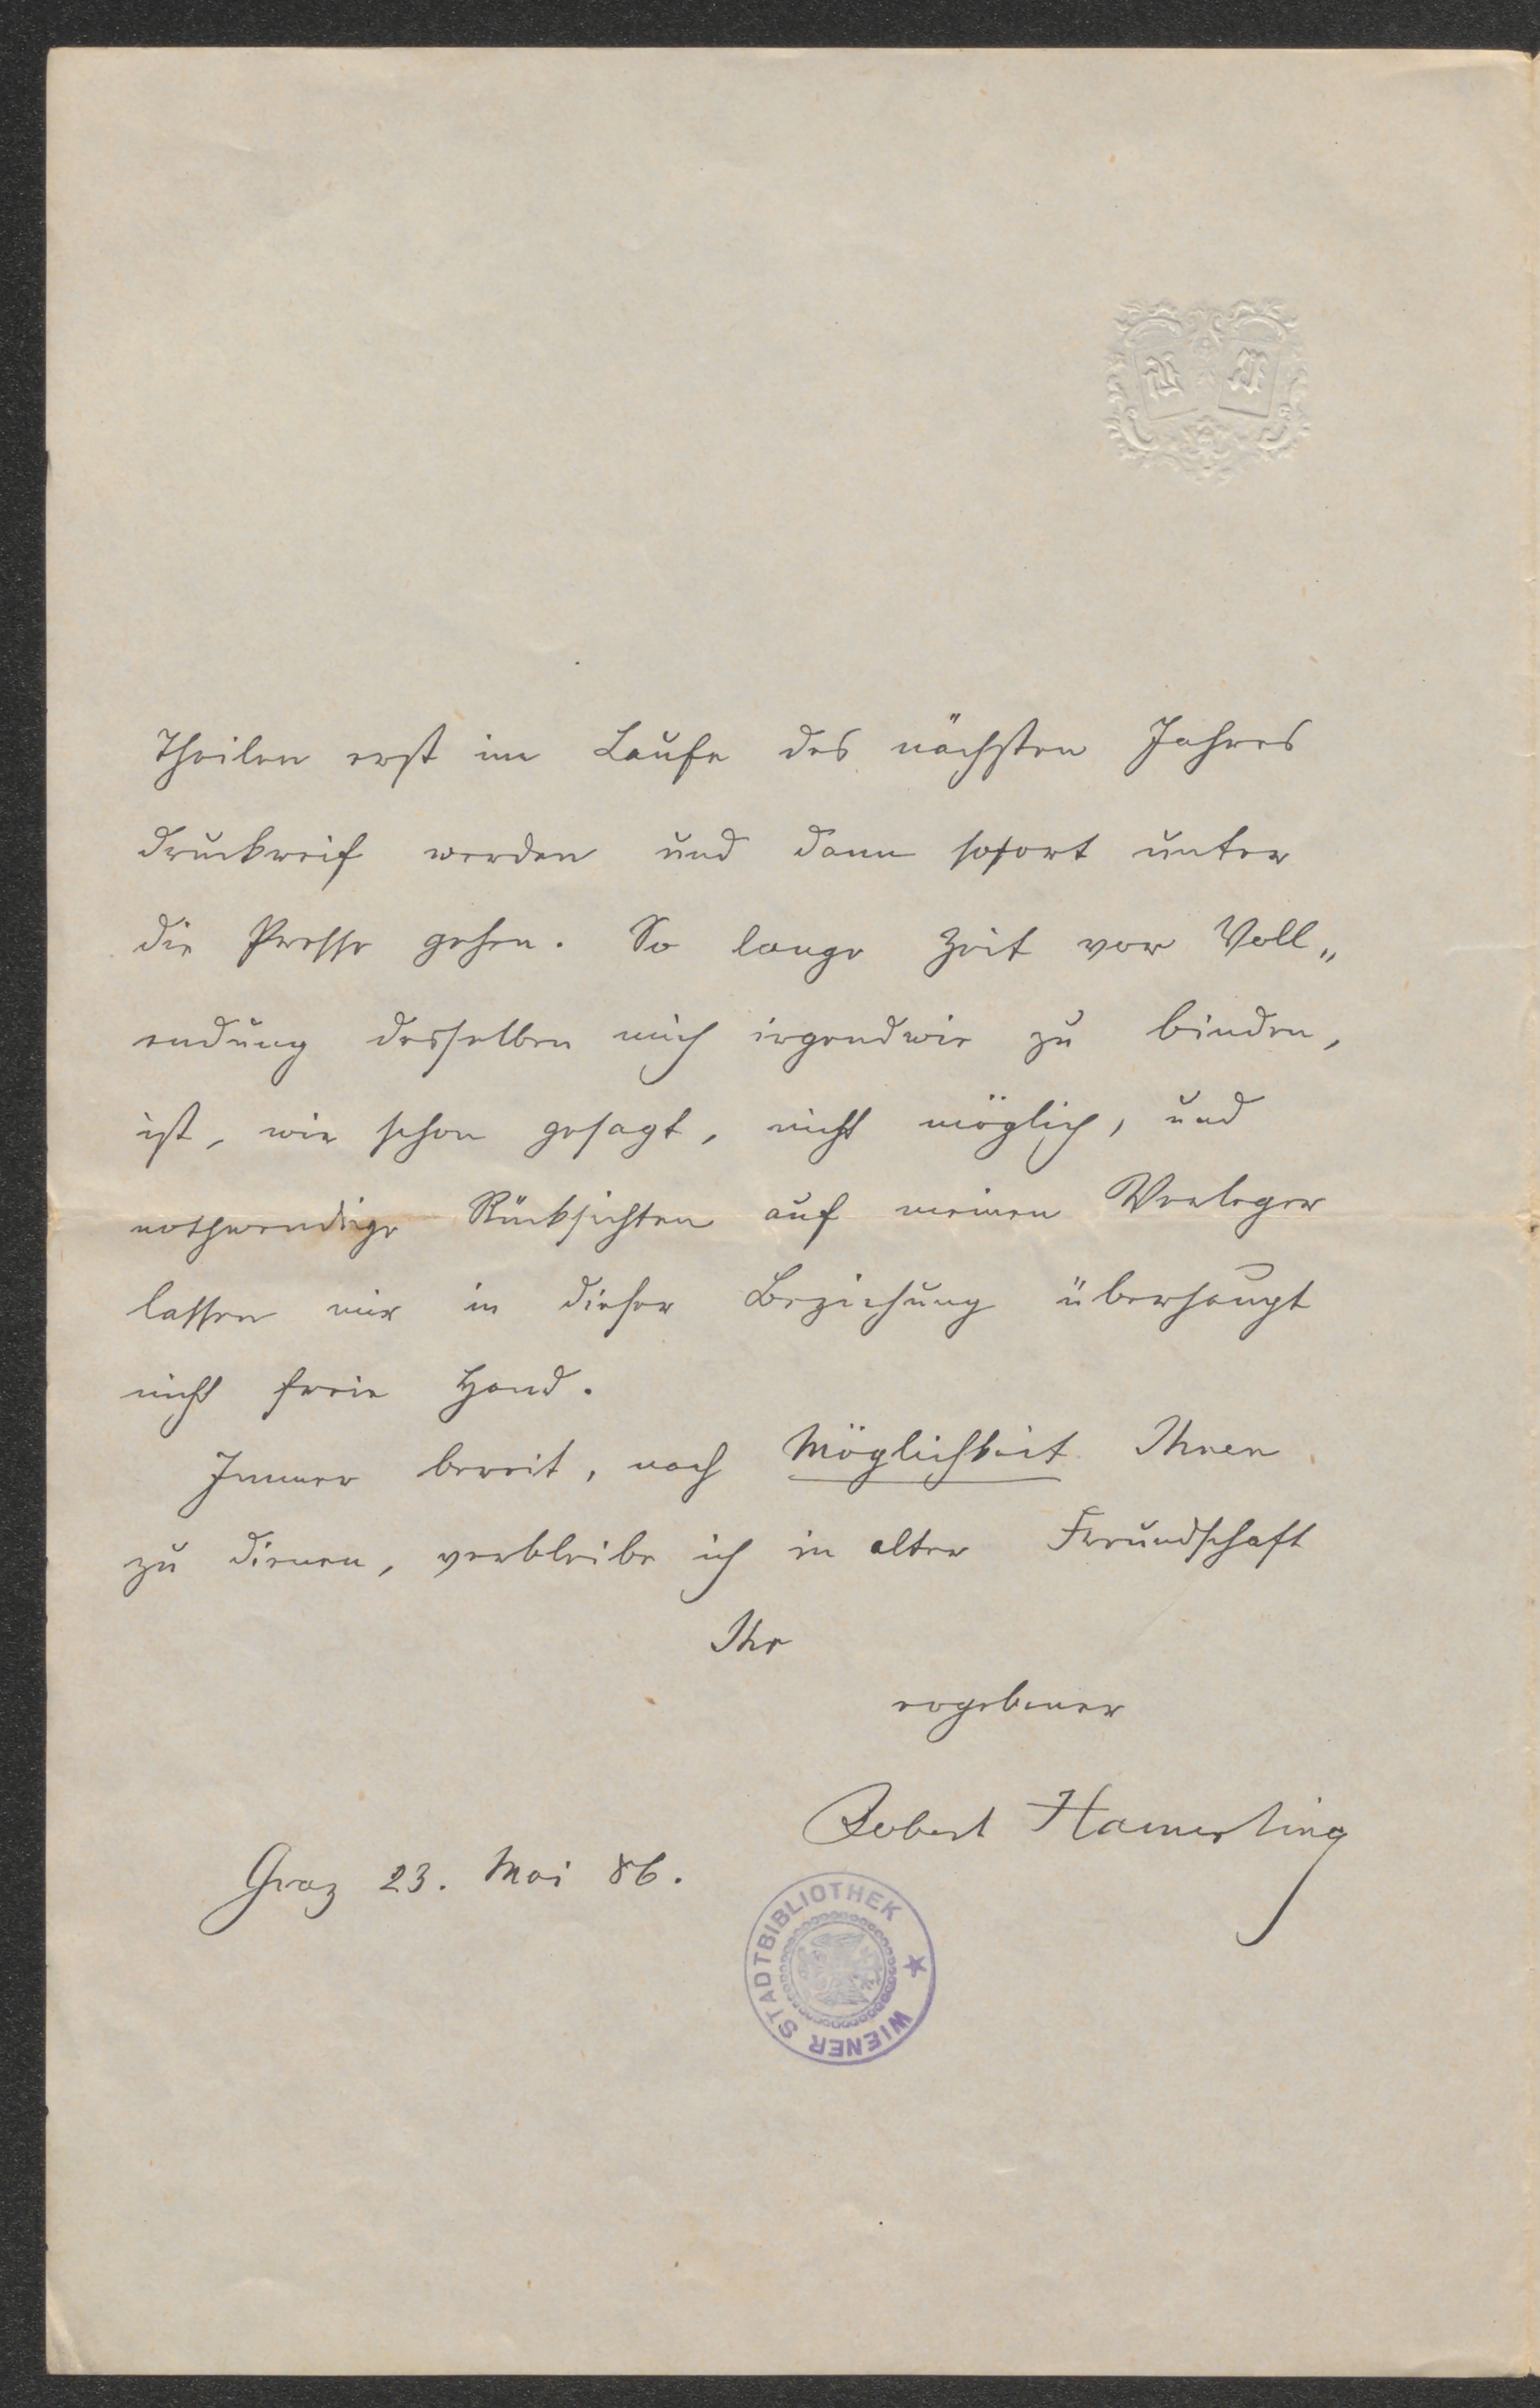 Theilen erst im Laufe des nächsten Jahres
druckreif werden und dann sofort unter
die Presse gehen. So lange Zeit vor Voll„
endung desselben mich irgendwie zu binden,
ist, wie schon gesagt, nicht möglich, und
nothwendige Rücksichten auf meinen Verleger
lassen mir in dieser Beziehung überhaupt
nicht freie Hand.
Immer bereit, nach Möglichkeit Ihnen
zu dienen, verbleibe ich in alter Freundschaft
Ihr
ergebener
Robert Hamerling
Graz 23. Mai 86.
WIENER STADTBIBLIOTHEK